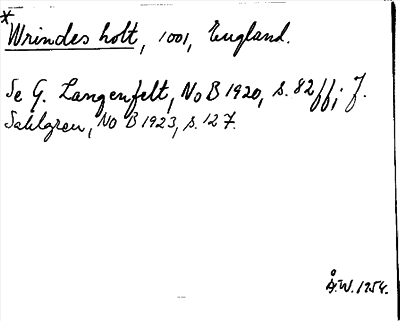 *Wrindes holt, 1001, England.
Se G. Langenfelt, NoB 1920, s. 82 ff; J.
Sahlgren, NoB 1923, s. 127.
Å.W. 1954.